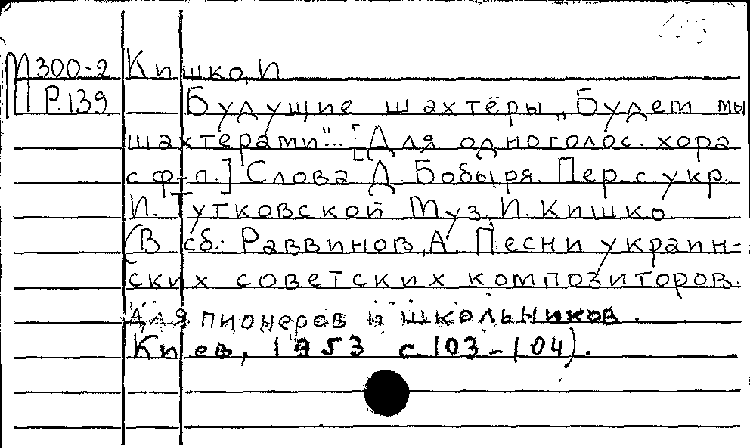 М300-2 Кишко, И.
Р.139 Будущие шахтёры „Будем мы
шахтерами"... [Для одноголос. хора
с ф-п.] Слова Д. Бобыря. Пер. с укр.
И. Тутковской Муз. И. Кишко.
(В сб.: Раввинов, А. Песни украин-
ских советских композиторов.
Для пионеров и школьников.
Киев, 1953 с. 103-104).